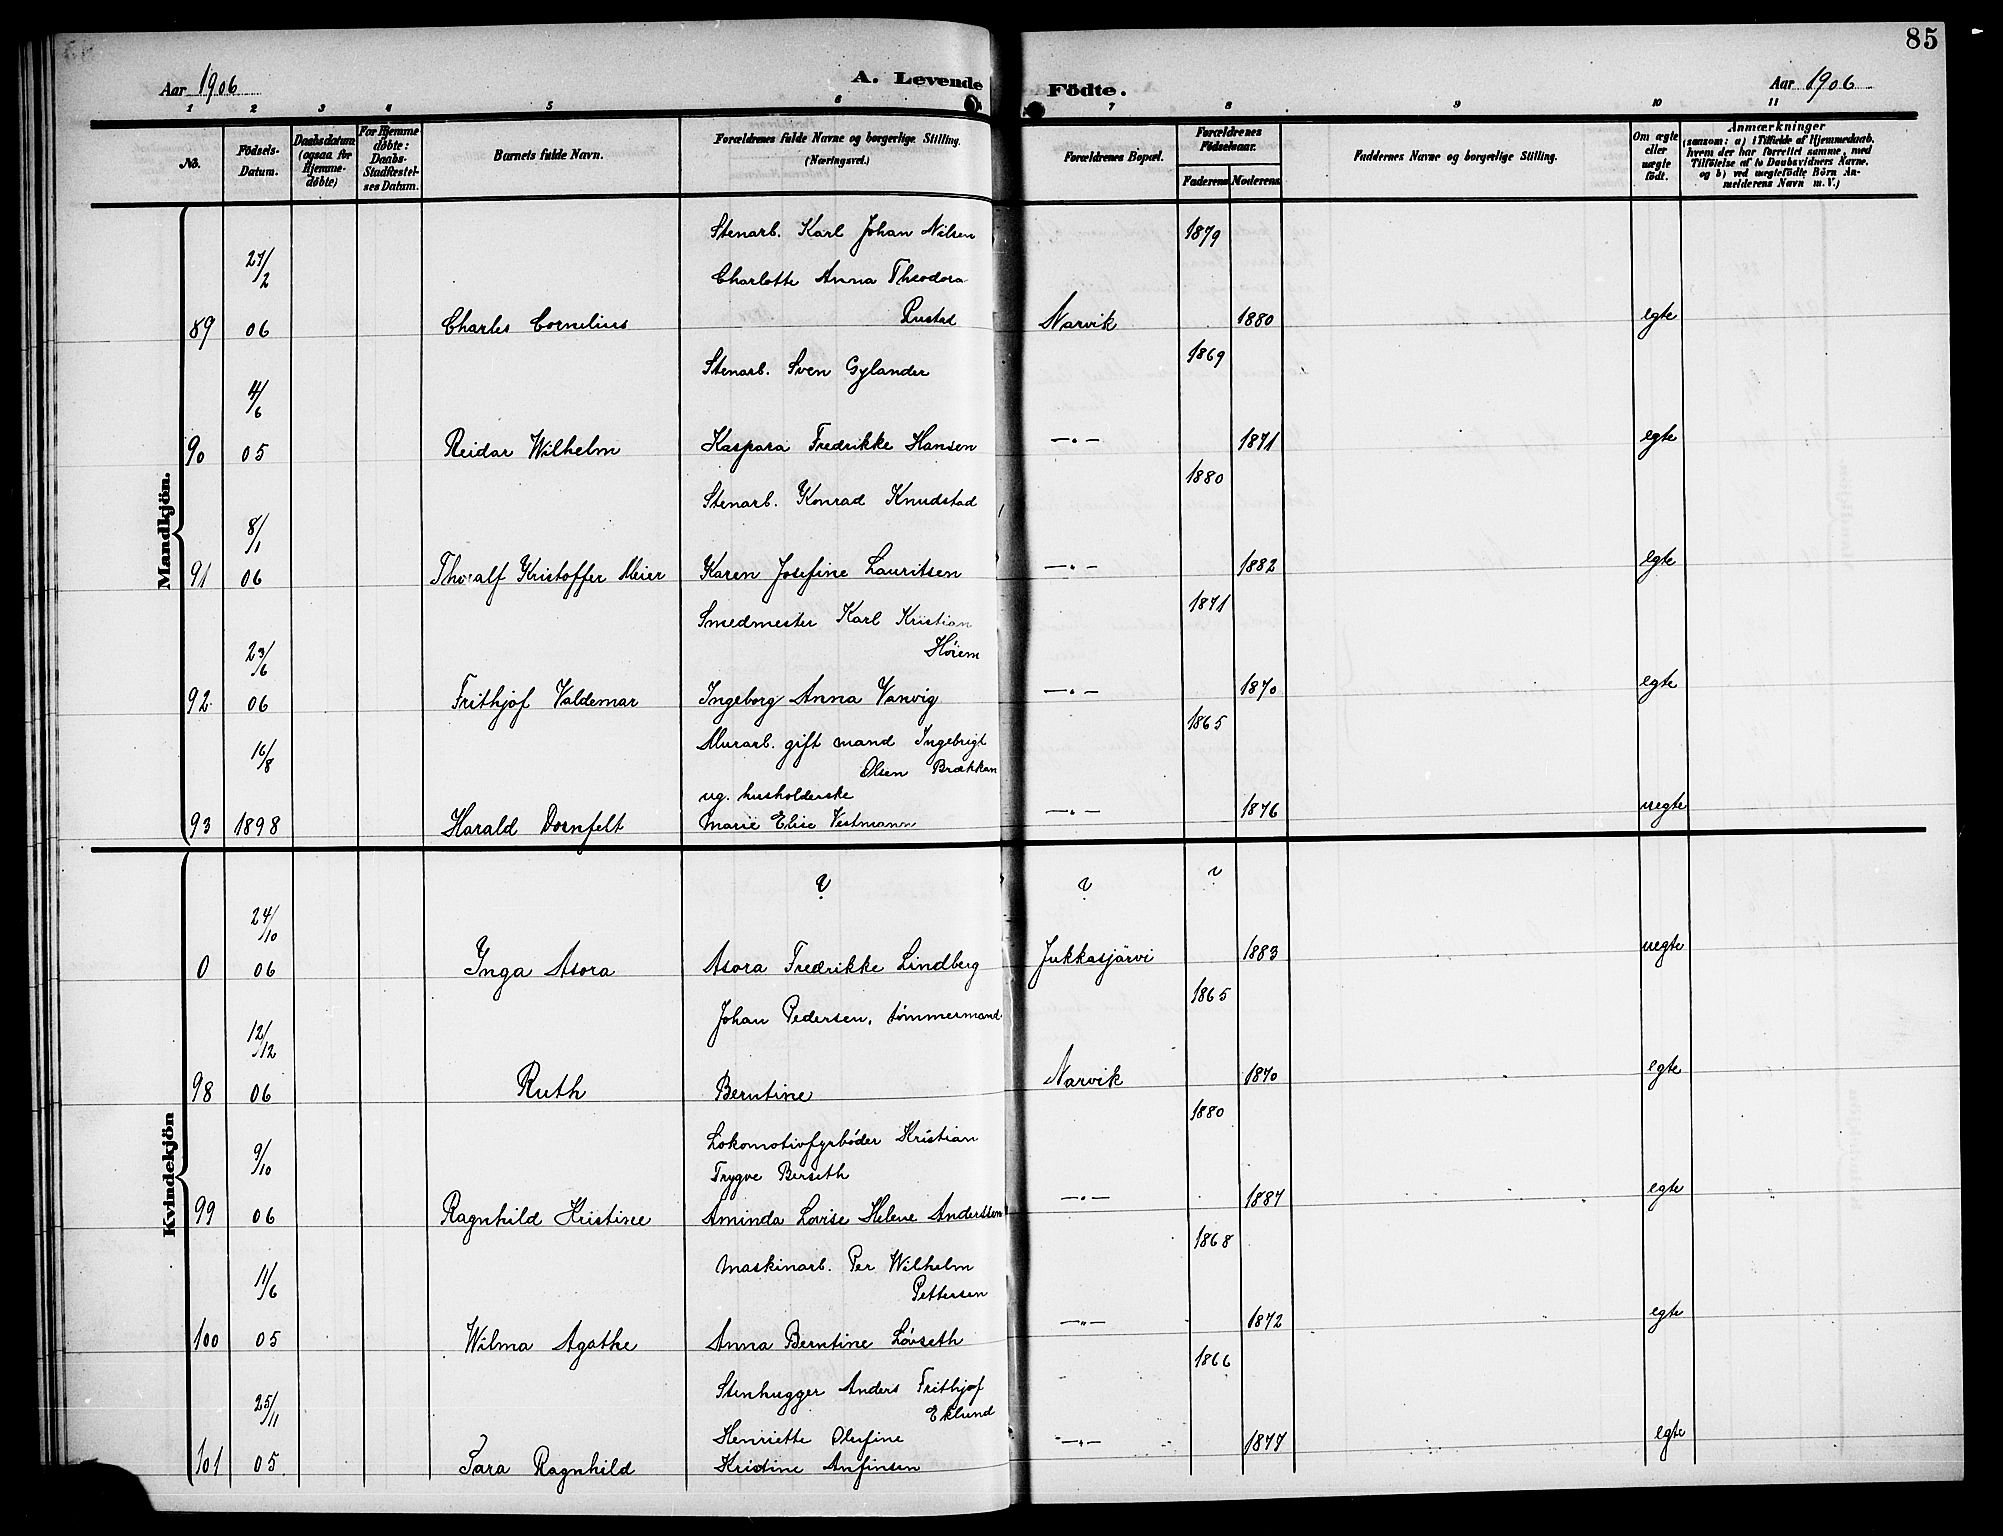 85
Aar 1906
A. Levende Födte.
Aar 1906
1 2 3 4 5 6 7 8 9 10 11
No.
Födsels-
Datum.
Daabsdatum
(ogsaa for
Hjemme-
døbte)
For Hjemme
døbte:
Daabs-
Stadfæstel-
ses Datum.
Barnets fulde Navn.
Forældrenes fulde Navne og borgerlige Stilling.
(Næringsvei.)
Forældrenes Bopæl.
Forældrenes
Födselsaar.
Faderens Moderens
Faddernes Navne og borgerlige Stilling.
Om ægte
eller
uægte
födt.
Anmærkninger
(saasom: a) i Tilfælde af Hjemmedaab.
hvem der har forrettet samme, med
Tilföielse af to Daabsvidners Navne.
og b) ved uægtefödte Börn An-
melderens Navn m. V.)
Mandkjön.
Stenarb. Karl Johan Nilsen 1879
27/2
Charlotte Anna Theodora
Rustad
89 06 Charles Cornelius Narvik 1880 egte
Stenarb. Sven Gylander 1869
4/6
90 05 Reidar Wilhelm Kaspara Fredrikke Hansen —„— 1871 egte
Stenarb. Konrad Knudstad 1880
8/1
91 06 Thoralf Kristoffer Meier Karen Josefine Lauritsen —„— 1882 egte
Smedmester Karl Kristian 1871
Høiem
23/6
92. 06 Frithjof Valdemar Ingeborg Anna Vanvig —„— 1870 egte
Murarb. gift mand Ingebrigt 1865
16/8
Olsen Brækkan
ug. husholderske
93 1898 Harald Dornfelt Marie Elise Vestmann —„— 1876 uegte
Kvindekjön
? ? ?
24/10
0 06 Inga Asora Asora Fredrikke Lindberg Jukkasjärvi 1883 uegte
Johan Pedersen, tømmermand 1865
12/12
98 06 Ruth Berntine Narvik 1870 egte
Lokomotivfyrbøder Kristian 1880
9/10
Trygve Berseth
99 06 Ragnhild Kristine Aminda Lovise Helene Anderssen —„— 1887 egte
Maskinarb. Per Wilhelm 1868
11/6
Pettersen
100 05 Wilma Agathe Anna Berntine Løvseth —„— 1872 egte
Stenhugger Anders Frithjof 1866
25/11
Eklund
Henriette Olufine
101 05 Sara Ragnhild Kristine Anfinsen —„— 1877 egte